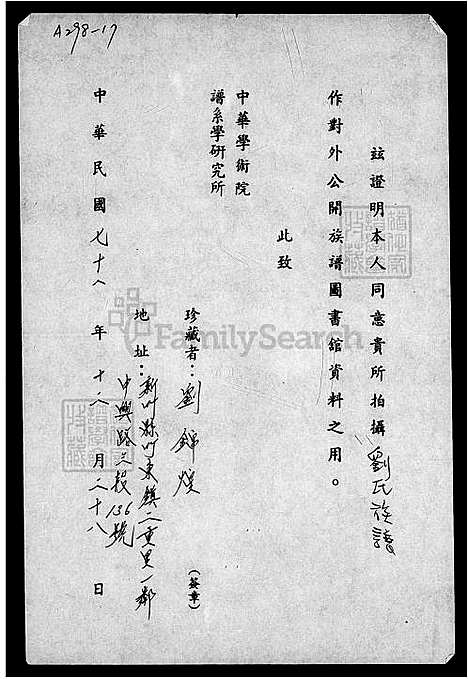 A298-17
茲證明本人同意貴所拍攝劉氏族譜
作對外公開族譜圖書館資料之用。
此致
中華學術院
譜系學研究所
珍藏者：劉錦
（簽章）
地址：新竹縣竹東鎮二重里一鄰
中興路三段136號
中華民國七十八年十月二十八日
FamilySearch